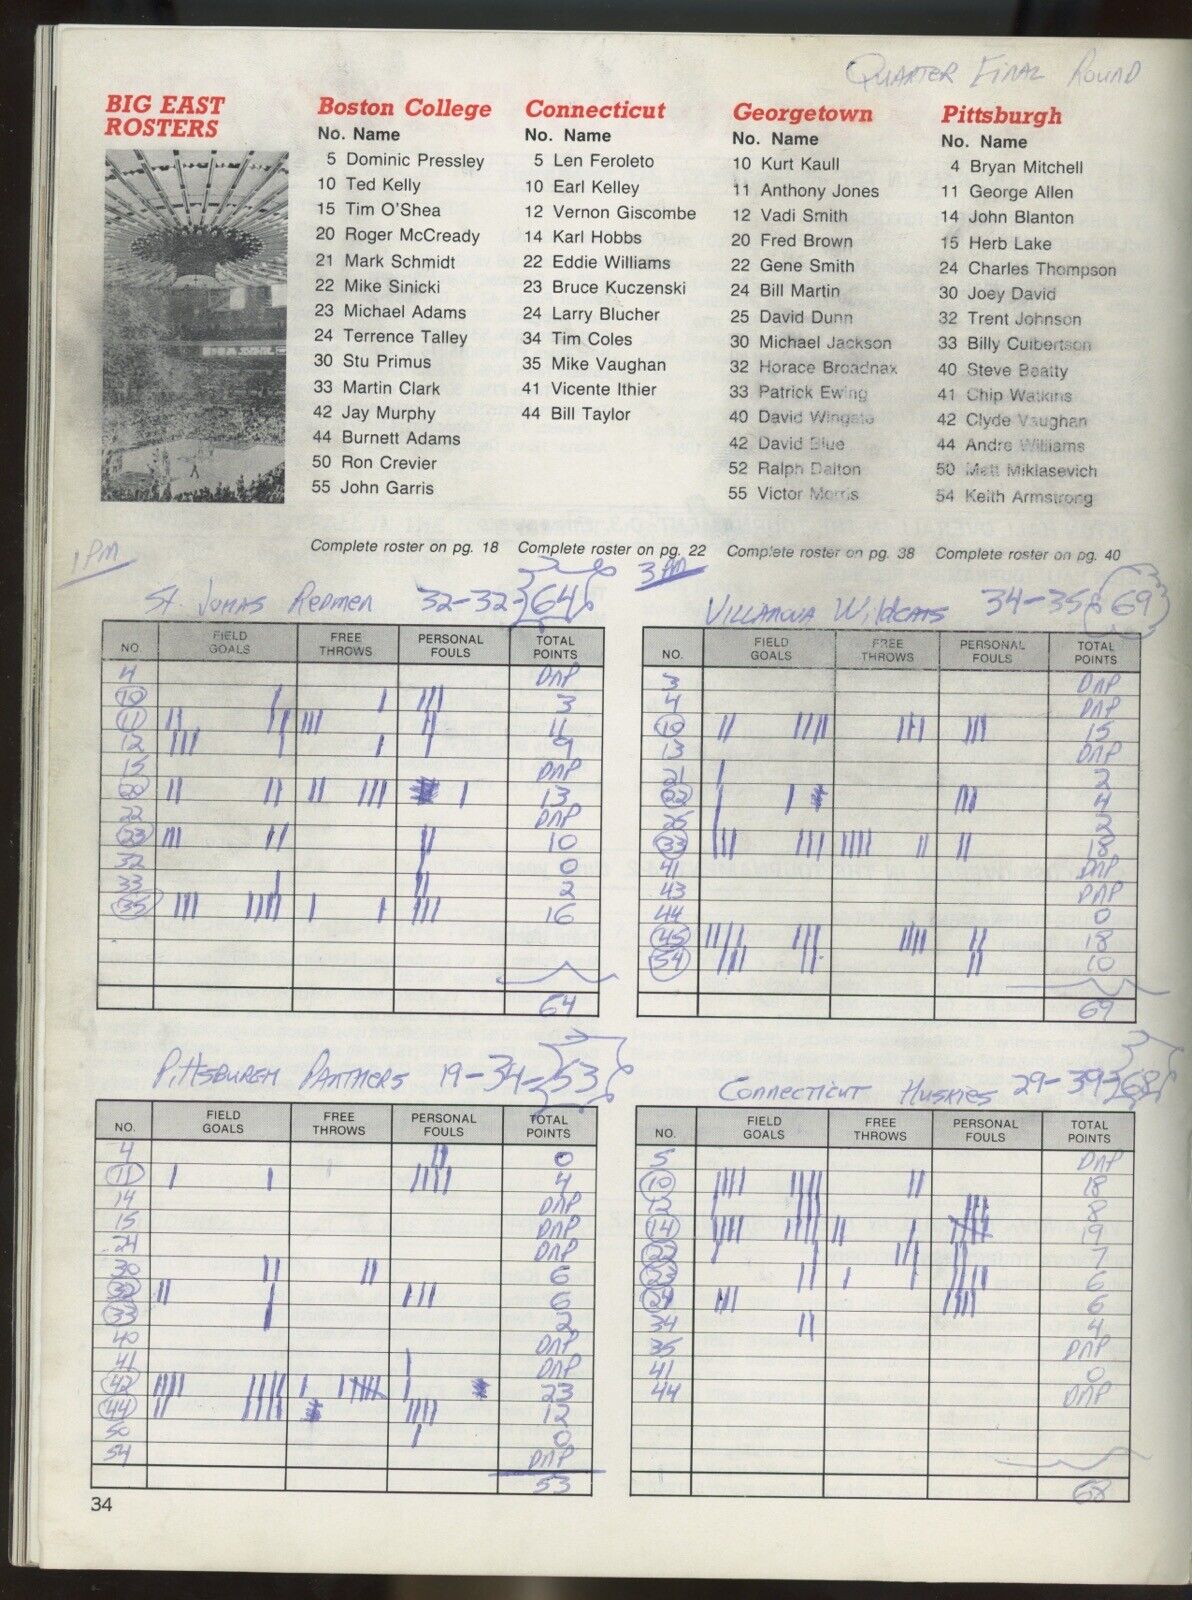 Quarter Final Round
BIG EAST
ROSTERS
Boston College
No. Name
5 Dominic Pressley
10 Ted Kelly
15 Tim O'Shea
20 Roger McCready
21 Mark Schmidt
22 Mike Sinicki
23 Michael Adams
24 Terrence Talley
30 Stu Primus
33 Martin Clark
42 Jay Murphy
44 Burnett Adams
50 Ron Crevier
55 John Garris
Complete roster on pg. 18
Connecticut
No. Name
5 Len Feroleto
10 Earl Kelley
12 Vernon Giscombe
14 Karl Hobbs
22 Eddie Williams
23 Bruce Kuczenski
24 Larry Blucher
34 Tim Coles
35 Mike Vaughan
41 Vicente Ithier
44 Bill Taylor
Complete roster on pg. 22
Georgetown
No. Name
10 Kurt Kaull
11 Anthony Jones
12 Vadi Smith
20 Fred Brown
22 Gene Smith
24 Bill Martin
25 David Dunn
30 Michael Jackson
32 Horace Broadnax
33 Patrick Ewing
40 David Wingate
42 David Blue
52 Ralph Dalton
55 Victor Morris
Complete roster on pg. 38
Pittsburgh
No. Name
4 Bryan Mitchell
11 George Allen
14 John Blanton
15 Herb Lake
24 Charles Thompson
30 Joey David
32 Trent Johnson
33 Billy Culbertson
40 Steve Beatty
41 Chip Watkins
42 Clyde Vaughan
44 Andre Williams
50 Matt Miklasevich
54 Keith Armstrong
Complete roster on pg. 40
1 PM
St. Johns Redmen 32-32-64
NO. FIELD GOALS FREE THROWS PERSONAL FOULS TOTAL POINTS
4 DNP
10 3
11 11
12 9
15 DNP
20 13
22 DNP
23 10
32 0
33 2
35 16
64
3 PM
Villanova Wildcats 34-35-69
NO. FIELD GOALS FREE THROWS PERSONAL FOULS TOTAL POINTS
3 DNP
4 DNP
10 15
13 DNP
21 2
22 4
25 2
33 18
41 DNP
43 DNP
44 0
45 18
54 10
69
Pittsburgh Panthers 19-34-53
NO. FIELD GOALS FREE THROWS PERSONAL FOULS TOTAL POINTS
4 0
11 4
14 DNP
15 DNP
24 DNP
30 6
32 6
33 2
40 DNP
41 DNP
42 23
44 12
50 0
54 DNP
53
Connecticut Huskies 29-39-68
NO. FIELD GOALS FREE THROWS PERSONAL FOULS TOTAL POINTS
5 DNP
10 18
12 8
14 19
22 7
23 6
24 6
34 4
35 DNP
41 0
44 DNP
68
34